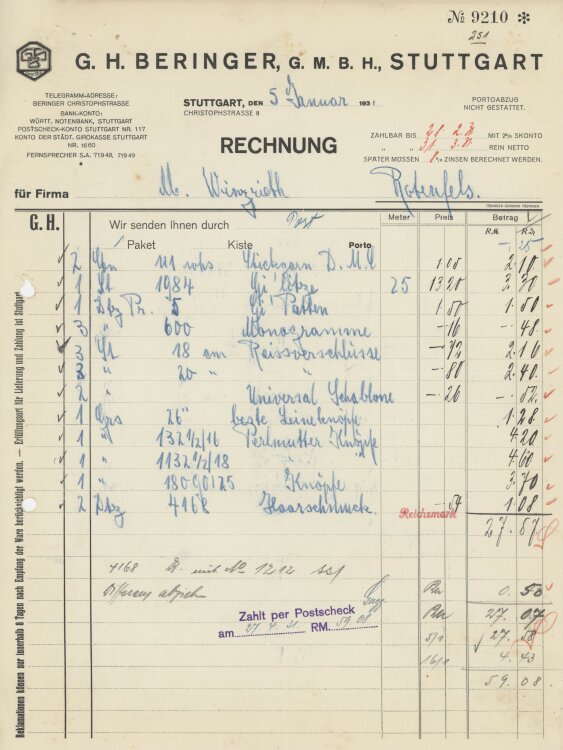 № 9210 ✻
251
G. H. BERINGER, G. M. B. H., STUTTGART
TELEGRAMM-ADRESSE:
BERINGER CHRISTOPHSTRASSE
BANK-KONTO:
WÜRTT. NOTENBANK, STUTTGART
POSTSCHECK-KONTO STUTTGART NR. 117
KONTO DER STÄDT. GIROKASSE STUTTGART
NR. 1660
FERNSPRECHER S.A. 71948, 71949
STUTTGART, DEN 5 Januar 1931
CHRISTOPHSTRASSE 8
RECHNUNG
PORTOABZUG
NICHT GESTATTET.
ZAHLBAR BIS 28. 2. MIT 2% SKONTO
" " 31. 3. REIN NETTO
SPÄTER MÜSSEN % ZINSEN BERECHNET WERDEN.
für Firma M. Winzrieth Rotenfels.
G. H. Wir senden Ihnen durch Post Meter Preis Betrag
1 Paket Kiste Porto R.M. R.S.
-.25
2 111 rohs Stickgarn D.M.C 1.05 2.10
1 St 1984 Litze 25 13.20 3.30
1 Dtz Pr. 5 Patten 1.50 1.50
3 " 600 Monogramme -.16 -.48
3 St 18 cm Reissverschlüsse -.72 2.16
3 " 20 " " -.80 2.40
2 " Universal Schablone -.26 -.52
1 Grs 26" beste Leinenknöpfe 1.28
1 " 132 1/2/16 Perlmutter Knöpfe 4.20
1 " 1132 1/2/18 " 4.60
1 " 18090/25 Knöpfe 3.70
2 Dtz 4168 Haarschmuck. -.54 1.08
Reichsmark 27.57
4168 mit No 1212
Differenz abziehn
0.50
Zahlt per Postscheck
am 27.4.31. RM. 59.08
27.07
5/1 27.58
16/1 4.43
59.08
Reklamationen können nur innerhalb 8 Tagen nach Empfang der Ware berücksichtigt werden. — Erfüllungsort für Lieferung und Zahlung ist Stuttgart